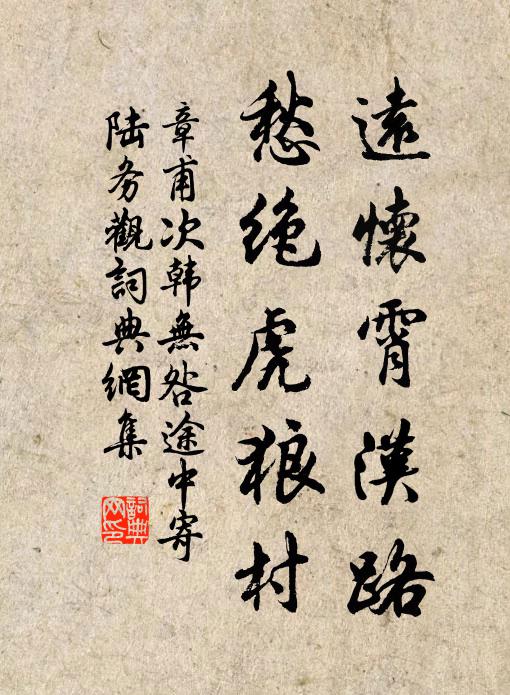 遠懷霄漢路
愁絶虎狼村
章甫次韩無咎途中寄
陆务觀詞典網集
詞典网印